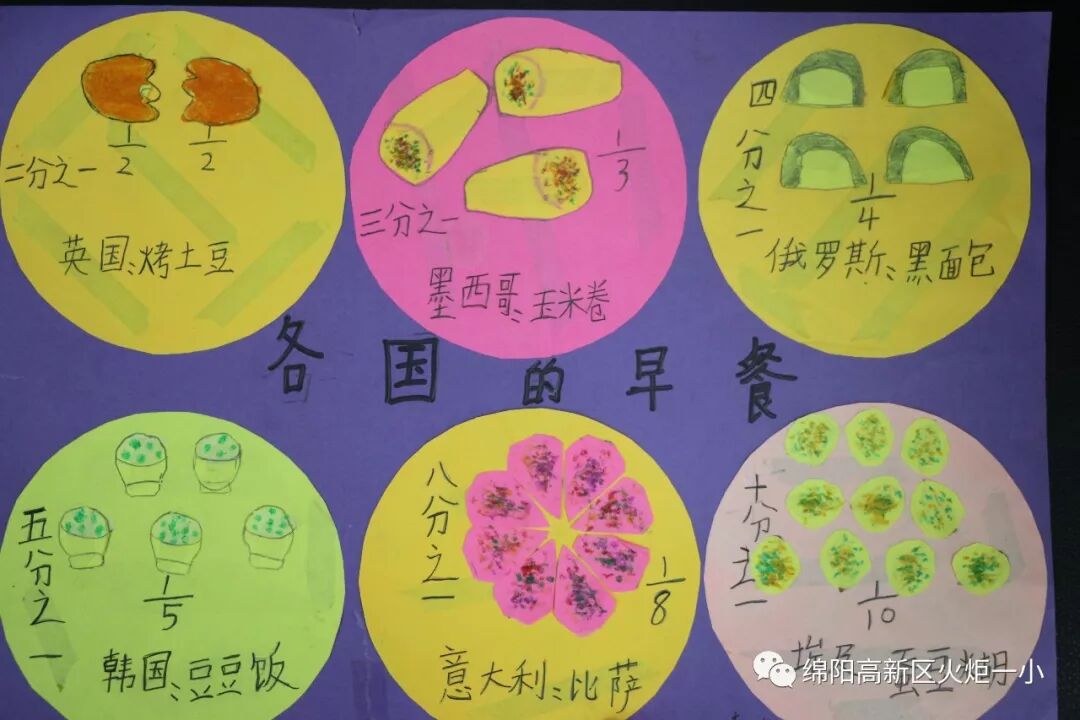 1/2 1/2
二分之一
英国:烤土豆
1/3
三分之一
墨西哥:玉米卷
四分之一
1/4
俄罗斯:黑面包
各国的早餐
五分之一
1/5
韩国:豆豆饭
八分之一
1/8
意大利:比萨
十分之一
1/10
蚕豆
绵阳高新区火炬一小